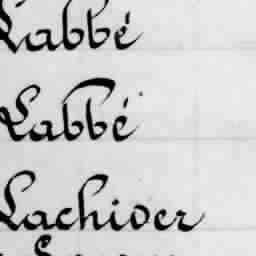 Labbé
Labbé
Lachiver